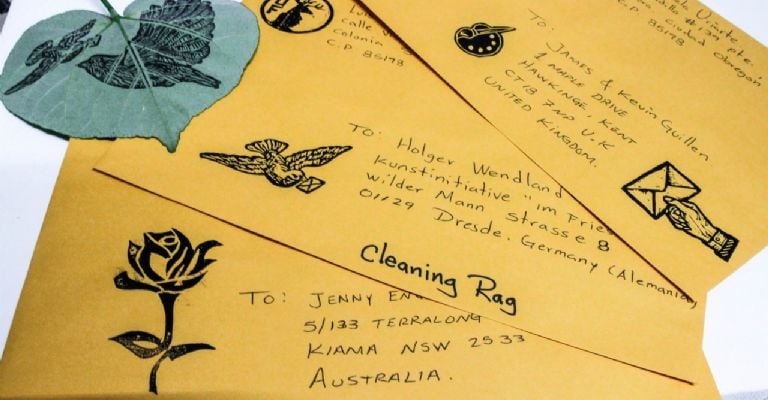 calle
Colonia
C.P 85198
C.P. 85198
ciudad obregon
TO: JAMES & Kevin Guillen
1 MAPLE DRIVE
HAWKINGE, KENT
CT18 7NP U.K
UNITED KINGDOM.
TO: Holger Wendland
Kunstinitiative "im Frie
wilder Mann Strasse 8
01129 Dresde. Germany (Alemania)
Cleaning Rag
TO: JENNY EN
5/133 TERRALONG
KIAMA NSW 2533
AUSTRALIA.